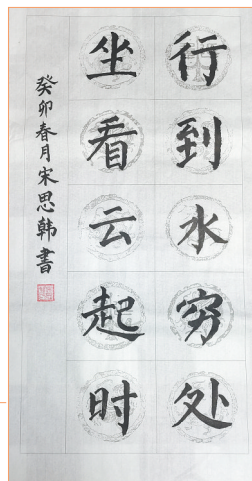 行到水穷处
坐看云起时
癸卯春月宋思韩書